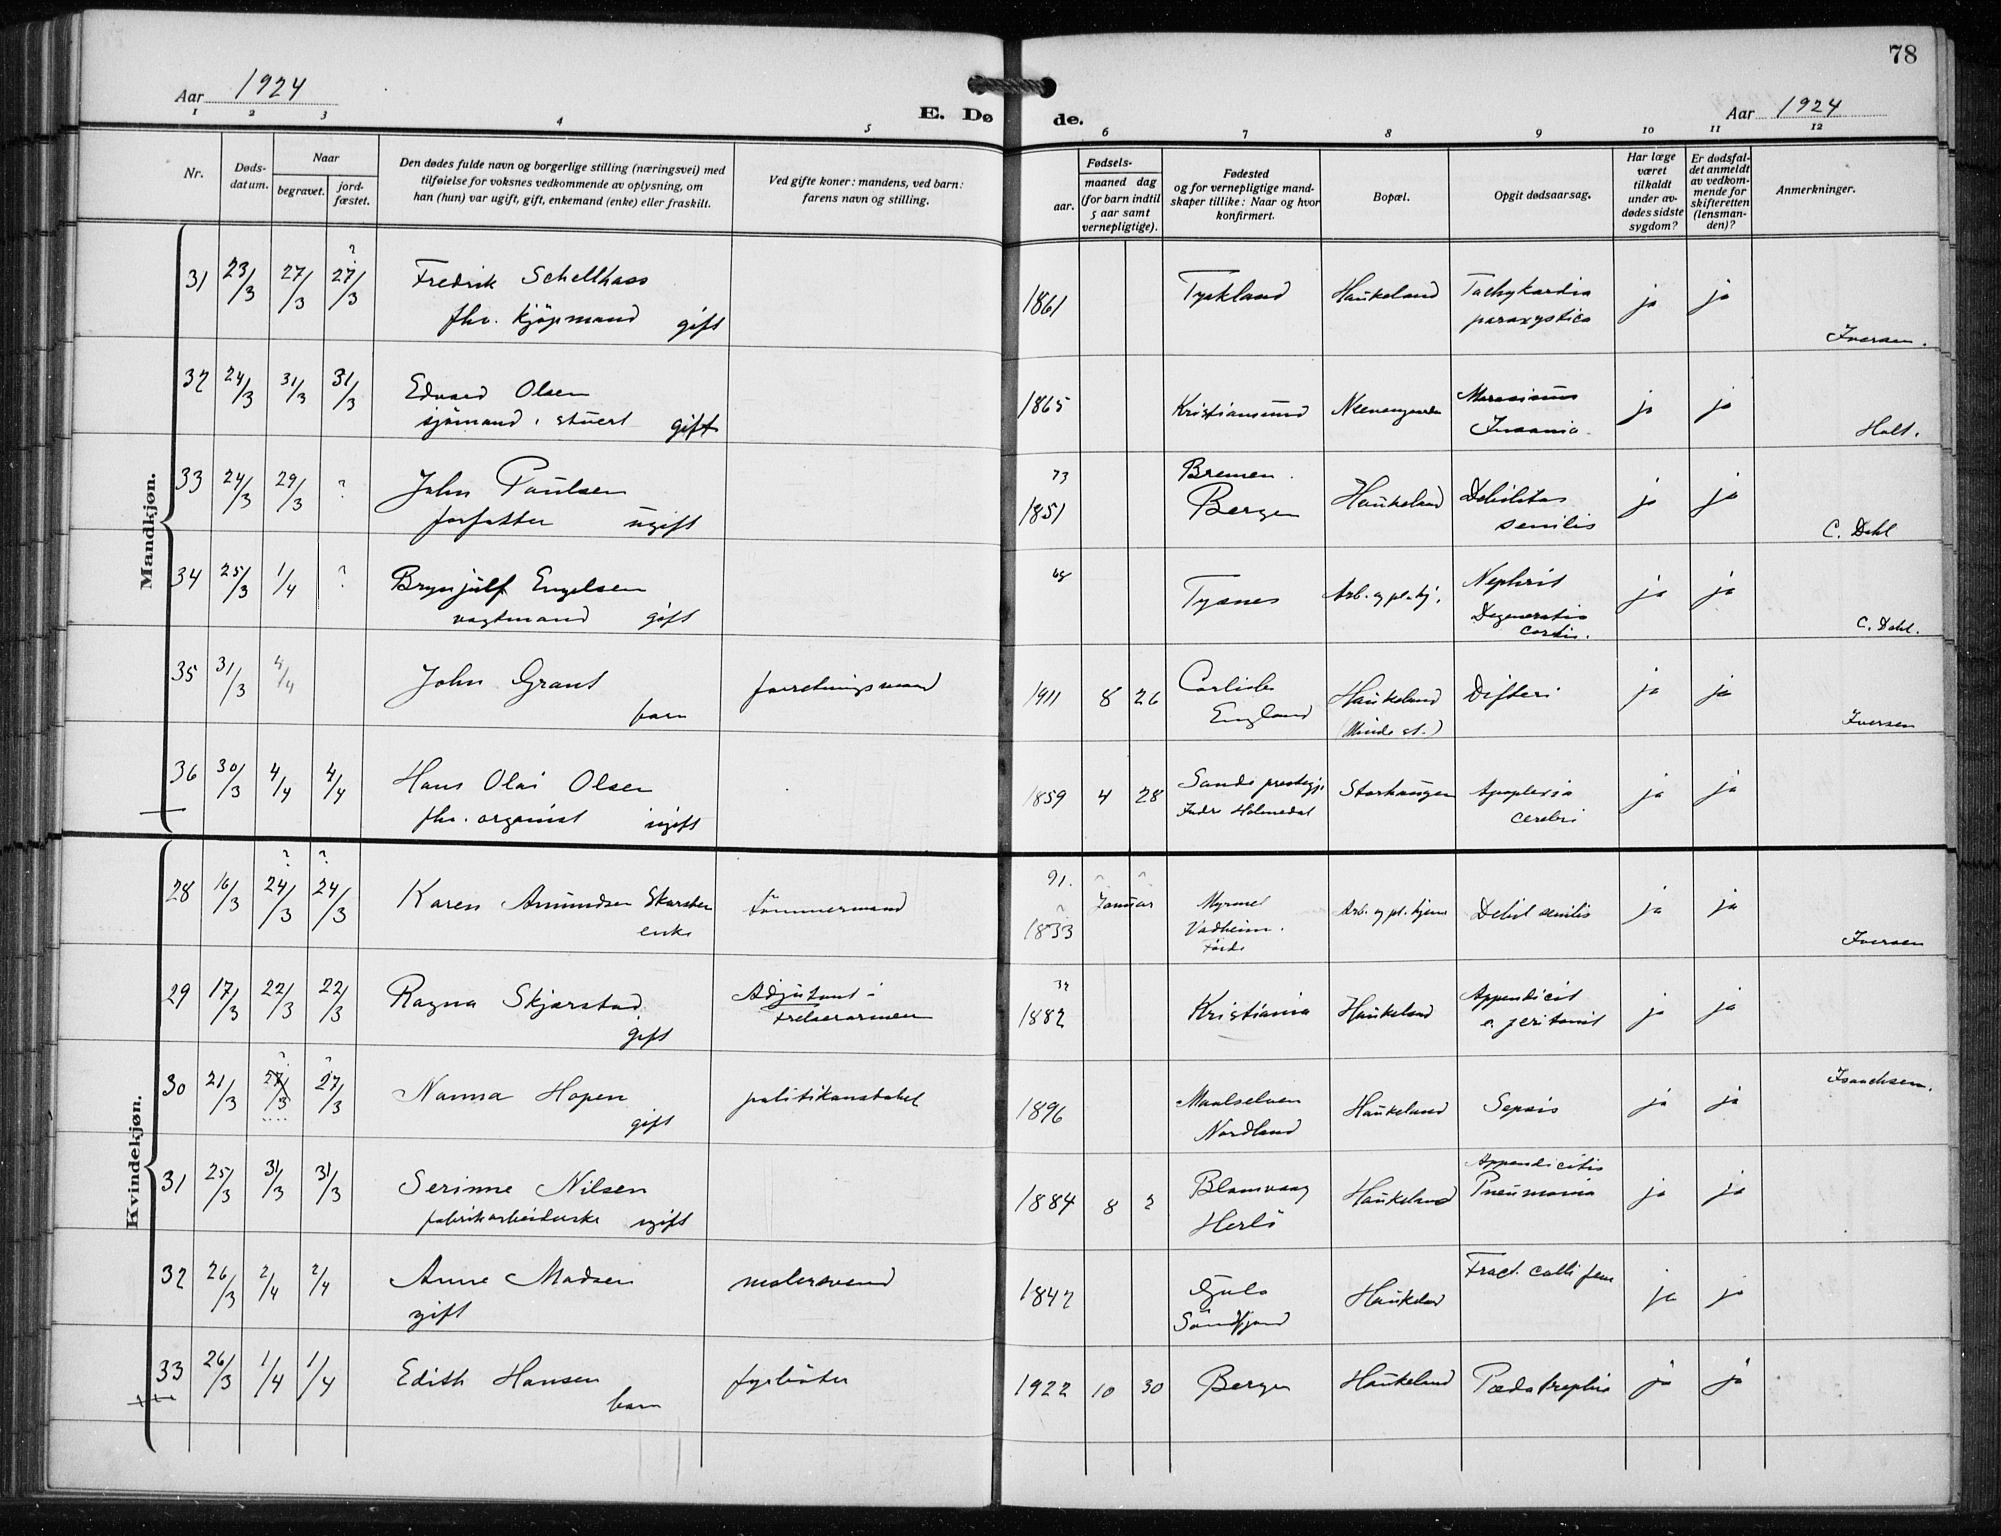 78
Aar 1924
E. Døde.
Aar 1924
1 2 3 4 5 6 7 8 9 10 11 12
Nr.
Døds-
datum.
Naar
begravet.
jord-
fæstet.
Den dødes fulde navn og borgerlige stilling (næringsvei) med
tilføielse for voksnes vedkommende av oplysning, om
han (hun) var ugift, gift, enkemand (enke) eller fraskilt.
Ved gifte koner: mandens, ved barn:
farens navn og stilling.
Fødsels-
aar.
maaned dag
(for barn indtil
5 aar samt
vernepligtige).
Fødested
og for vernepligtige mand-
skaper tillike: Naar og hvor
konfirmert.
Bopæl.
Opgit dødsaarsag.
Har læge
været
tilkaldt
under av-
dødes sidste
sygdom?
Er dødsfal-
det anmeldt
av vedkom-
mende for
skifteretten
(lensman-
den)?
Anmerkninger.
Mandkjøn.
31 23/3 27/3 ? 27/3 Fredrik Schelthass
fhv. kjøpmand gift
1861 Tyskland Haukeland Tachykardia
paroxystica ja ja Iversen.
32 24/3 31/3 31/3 Edvard Olsen
sjömand, stuert gift
1865 Kristiansund Neevengaarden Marasimus
Insania. ja ja Holt.
33 24/3 29/3 ? John Paulsen
forfatter ugift
73
1851 Bremen.
Bergen Haukeland Debilitas
senilis ja ja C. Dahl
34 25/3 1/4 ? Brynjulf Engelsen
vagtmand gift
68 Tysnes Arb. og pl.hj. Nephrit
Degeneratio
cordis. ja ja C. Dahl.
35 31/3 4/4 John Grant
barn
forretningsmand
1911 8 26 Carlisle
England Haukeland
(Minde st.) Difteri ja ja Iversen
36 30/3 4/4 4/4 Hans Olai Olsen
fhv. organist ugift
1859 4 28 Sande prestegj.
Indre Holmedal Storhaugen Apoplexia
cerebri ja ja
Kvindekjøn.
28 16/3 ? 24/3 ? 24/3 Karen Amundsen Skarsten
enke
tömmermand
91.
1833 Januar Myrmel
Vadheim.
Förde Arb. og pl. hjem Debil senilis ja ja Iversen
29 17/3 22/3 22/3 Ragna Skjærstad
gift
Adjutant i
Frelserarmeen
1882 Kristiania Haukeland Appendicit
c. peritonit ja ja
30 21/3 ? 27/3 ? 27/3 Nanna Hopen
gift
politikonstabel
1896 Maalselven
Nordland Haukeland Sepsis ja ja Isaachsen.
31 25/3 31/3 31/3 Serinne Nilsen
fabrikarbeiderske ugift
1884 8 2 Blomvaag
Herlö Haukeland Appendicitis
Pneumonia ja ja
32 26/3 2/4 2/4 Anne Madsen
gift
malersvend
1842 Gula
Sundfjord Haukeland Fract. colli fem ja ja
33 26/3 1/4 1/4 Edith Hansen
barn
fyrböter
1922 10 30 Bergen Haukeland Pædatrophia ja ja